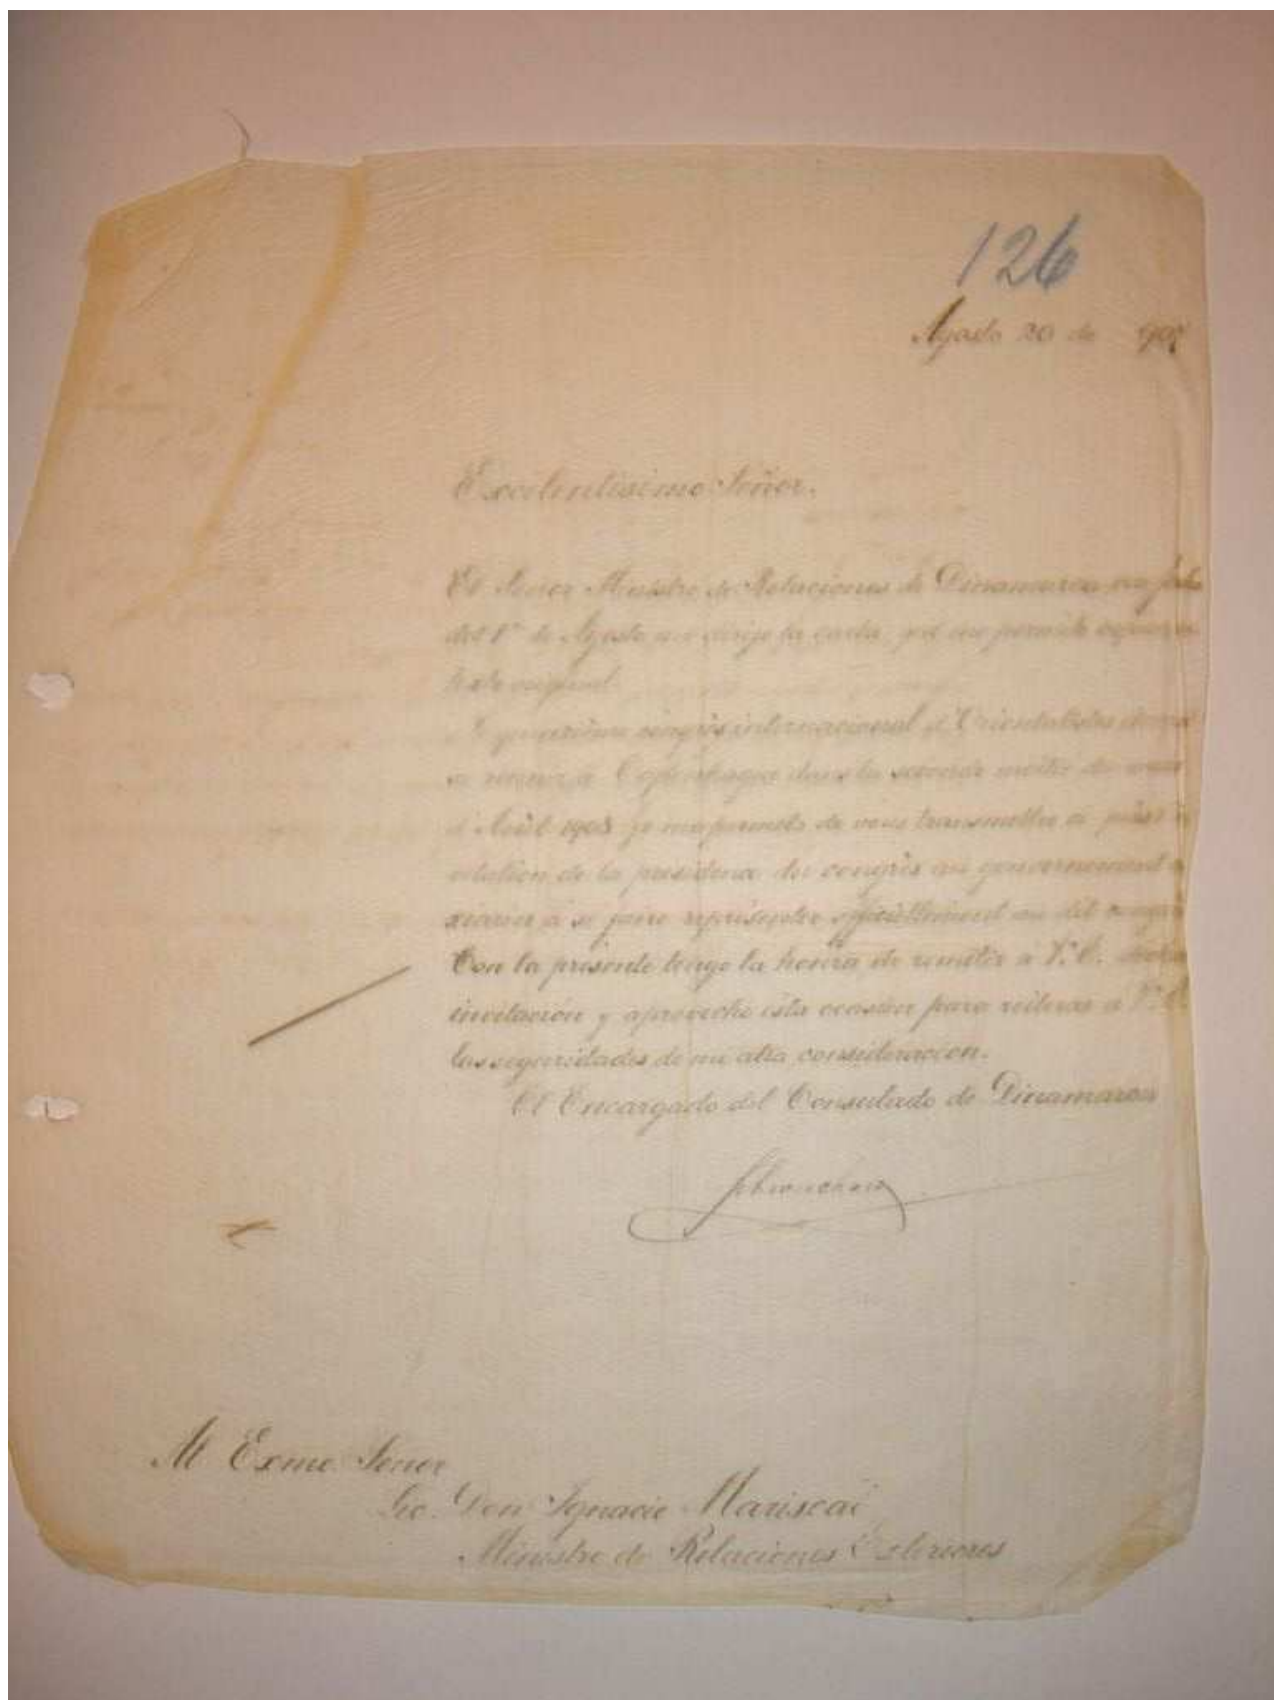 126
Agosto 20 de 907
Excelentísimo Señor.
El Señor Ministro de Relaciones de Dinamarca en fecha
del 1º de Agosto me dirije la carta qᵉ me permite
texto original.
Le quinzième congrès internacional d'Orientalistes devant
se réunir à Copenhague dans la seconde moitié du mois
d'Août 1908 je me permets de vous transmettre ci
vitation de la présidence du congrès au gouvernement
xicain à se faire représenter officiellement au dit congrès
Con la presente tengo la honra de remitir a V. E. dicha
invitación y aprovecho esta ocasión para reiterar a V. E.
las seguridades de mi alta consideración.
El Encargado del Consulado de Dinamarca
Al Exmo. Señor
Lic. Don Ignacio Mariscal
Ministro de Relaciones Exteriores